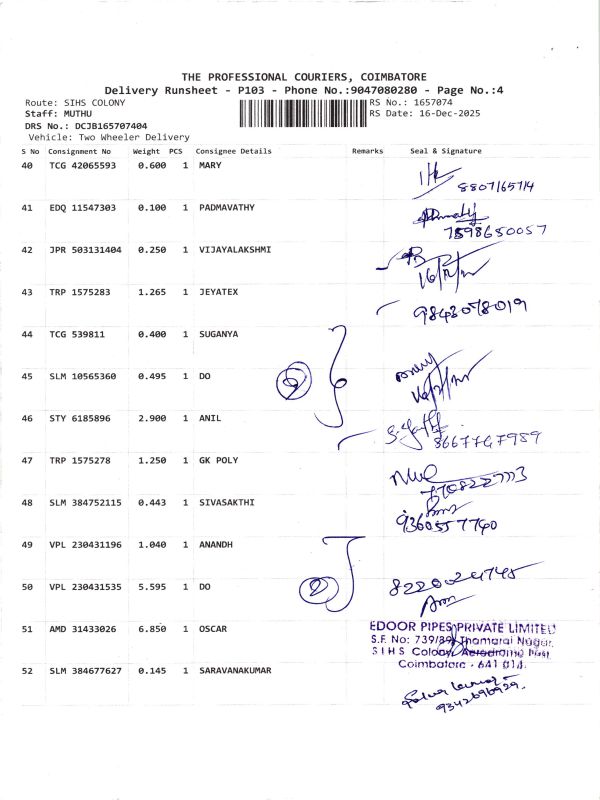 THE PROFESSIONAL COURIERS, COIMBATORE
Delivery Runsheet - P103 - Phone No.:9047080280 - Page No.:4
Route: SIHS COLONY
RS No.: 1657074
Staff: MUTHU
RS Date: 16-Dec-2025
DRS No.: DCJB165707404
Vehicle: Two Wheeler Delivery
S No Consignment No Weight PCS Consignee Details Remarks Seal & Signature
40 TCG 42065593 0.600 1 MARY
41 EDQ 11547303 0.100 1 PADMAVATHY
7598650057
42 JPR 503131404 0.250 1 VIJAYALAKSHMI
43 TRP 1575283 1.265 1 JEYATEX
9843078019
44 TCG 539811 0.400 1 SUGANYA
45 SLM 10565360 0.495 1 DO
2
46 STY 6185896 2.900 1 ANIL
8667767989
47 TRP 1575278 1.250 1 GK POLY
48 SLM 384752115 0.443 1 SIVASAKTHI
9360557740
49 VPL 230431196 1.040 1 ANANDH
50 VPL 230431535 5.595 1 DO
2
8220024745
51 AMD 31433026 6.850 1 OSCAR
EDOOR PIPES PRIVATE LIMITED
S.F. No: 739/89, Thamarai Nagar,
SIHS Colony, Aerodrome Post,
Coimbatore - 641 014.
52 SLM 384677627 0.145 1 SARAVANAKUMAR
9342696929